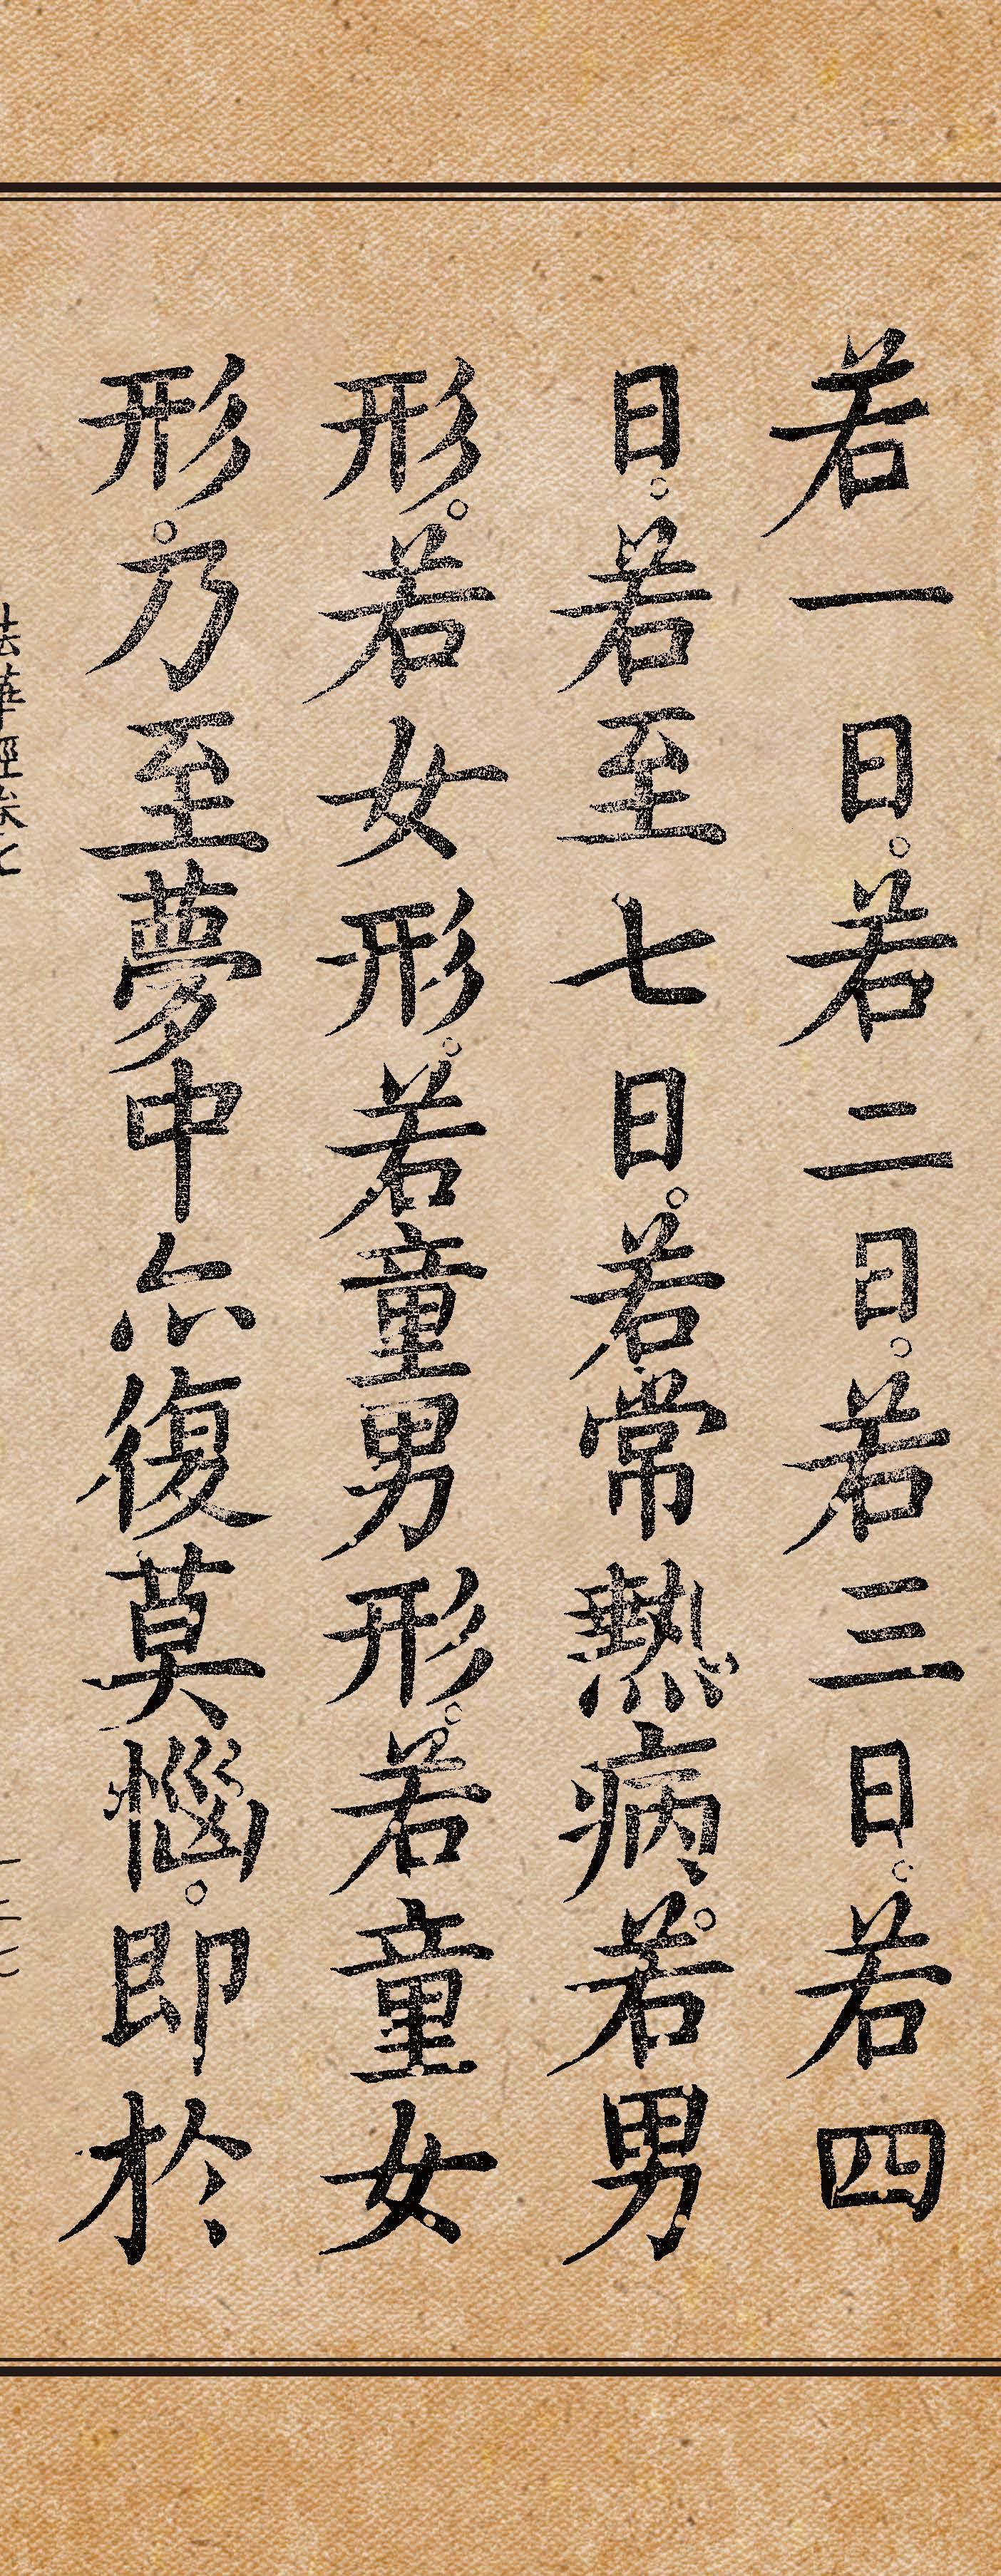 若一日。若二日。若三日。若四
日。若至七日。若常熱病。若男
形。若女形。若童男形。若童女
形。乃至夢中亦復莫惱。即於
法華經